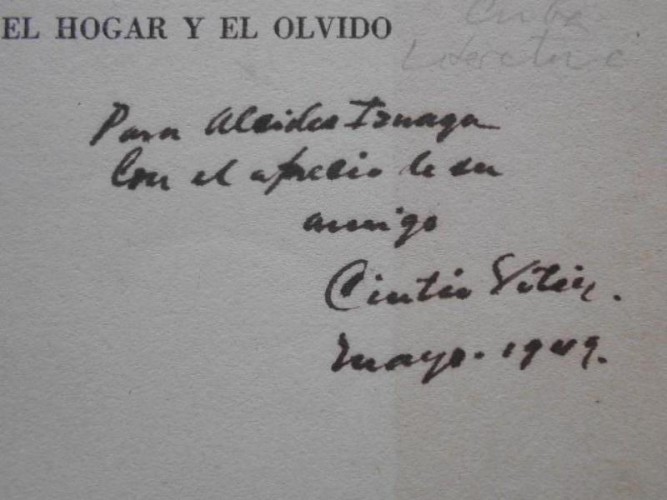 EL HOGAR Y EL OLVIDO
Cuba
Literature
Para Alcides Iznaga
Con el aprecio de su
amigo
Cintio Vitier.
mayo. 1949.